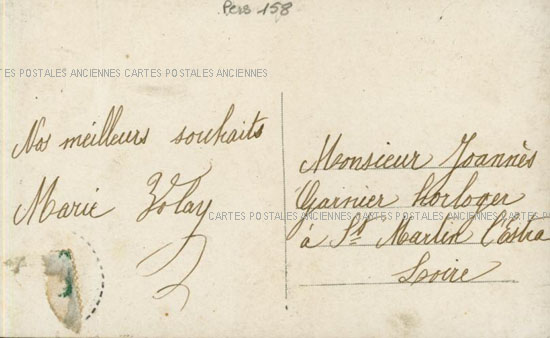 Pers 158
CARTES POSTALES ANCIENNES CARTES POSTALES ANCIENNES
Nos meilleurs souhaits
Marie Volay
Monsieur Joannès
Garnier horloger
à St Martin l'Estra
Loire
CARTES POSTALES ANCIENNES CARTES POSTALES ANCIENNES